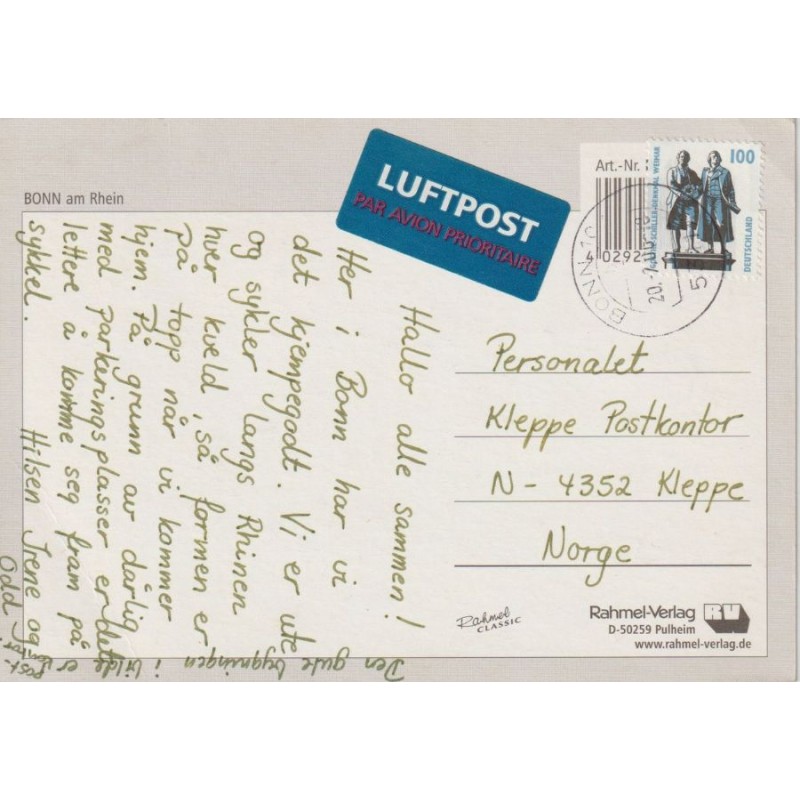 BONN am Rhein
LUFTPOST
PAR AVION PRIORITAIRE
Art.-Nr.
4 02921
100
DEUTSCHLAND
SCHILLER-DENKMAL WEIMAR
BONN
20.
53
Hallo alle sammen!
Her i Bonn har vi
det kjempegodt. Vi er ute
og sykler langs Rhinen
hver kveld, så formen er
på topp når vi kommer
hjem. På grunn av dårlig
med parkeringsplasser er det
lettere å komme seg fram på
sykkel. Hilsen Irene og
Odd
Den gule bygningen i bildet er
post-
kontor
Personalet
Kleppe Postkontor
N - 4352 Kleppe
Norge
Rahmel
CLASSIC
Rahmel-Verlag RV
D-50259 Pulheim
www.rahmel-verlag.de